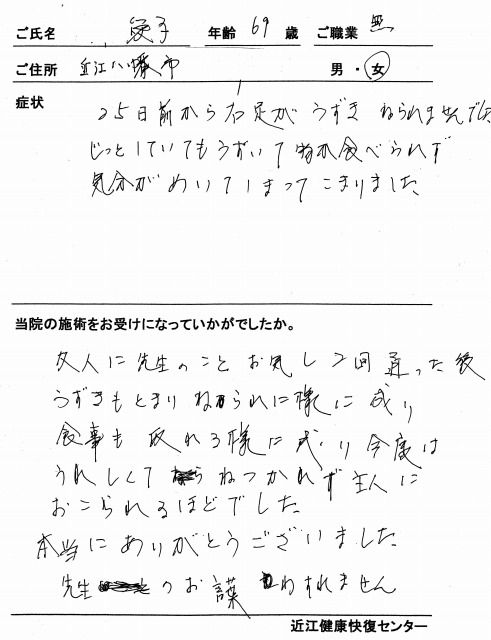 ご氏名 子 年齢 69 歳 ご職業 無
ご住所 近江八幡市 男・女
症状
25日前から右足がうずき ねられませんでした
じっとしていてもうずいて物が食べられず
気分がめいてしまってこまりました
当院の施術をお受けになっていかがでしたか。
友人に先生のこと お 2回通った後
うずきもとまり ねられに様に成り
食事も取れる様に成り今度は
うれしくて ねつかれず主人に
おこられるほどでした
本当にありがとうございました
先生 のお言葉 わすれません
近江健康快復センター